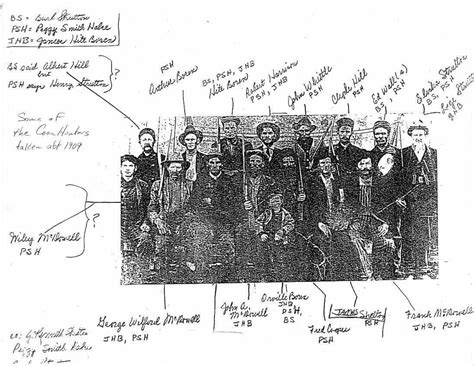 BS = Burl Stratton
PSH = Peggy Smith Hahre
JHB = Hite Boren
BS said Albert Hill
but
PSH says Henry Stratton
?
Some of
the Coon Hunters
taken abt 1909
Wiley McDowell
PSH
?
PSH
Arthur Boren
BS, PSH, JHB
Hite Boren
Robert Harrison
PSH, JHB
John Whittle
PSH
Hill
PSH
Ed Wall(s)
BS, PSH
Stratton
BS, PSH
JHB
George Wilford McDowell
JHB, PSH
John A.
McDowell
JHB
Orville Boren
JHB
PSH,
BS
Fred Cooper
PSH
James Skelton
PSH
Frank McDowell
JHB, PSH
cc:
Peggy Smith